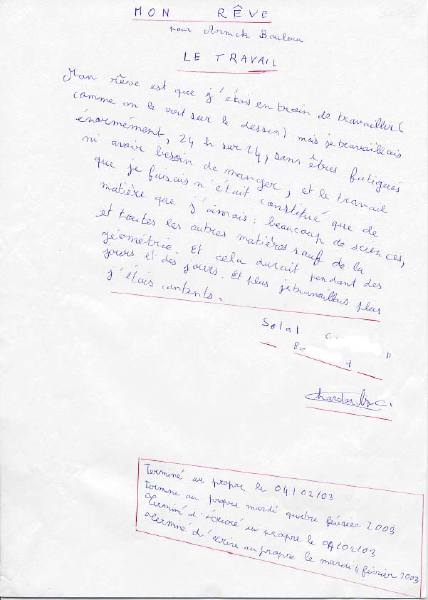 MON RÊVE
pour Annick
LE TRAVAIL
Mon rêve est que j'étais en train de travailler (
comme on le voit sur le dessin) mais je travaillais
énormément, 24 h sur 24, sans êtres fatigues
ni avoir besoin de manger, et le travail
que je faisais n'était constitué que de
matière que j'aimais: beaucoup de sciences,
et toutes les autres matières sauf de la
géométrie. Et cela durait pendant des
jours et des jours. Et plus je travaillais plus
j'étais contents.
Solal
Terminé au propre le 04/02/03
Terminé au propre mardi quatre février 2003
Terminé d'écrire au propre le 04/02/03
Terminé d'écrire au propre le mardi 4 février 2003